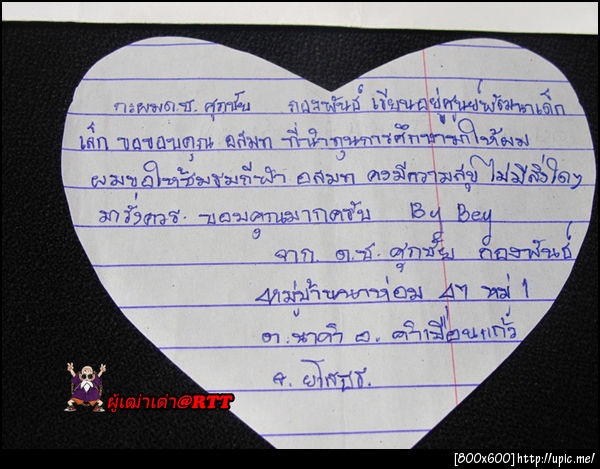 กะผมด.ช. ศุภชัย กองพันธ์ เรียนอยู่ศูนย์พัฒนาเด็ก
เล็ก ขอขอบคุณ อสมท ที่นำทุนการศึกษามาให้ผม
ผมขอให้ชมรมกีฬา อสมท คงมีความสุข ไม่มีสิ่งใดๆ
มารังควร. ขอบคุณมากครับ By Bey
จาก. ด.ช. ศุภชัย กองพันธ์
หมู่บ้านนาห่อม 47 หมู่ 1
ต.นาคำ อ. คำเขื่อนแก้ว
จ. ยโสธร.
ผู้เฒ่าเต่า@RTT
[800x600]http://upic.me/